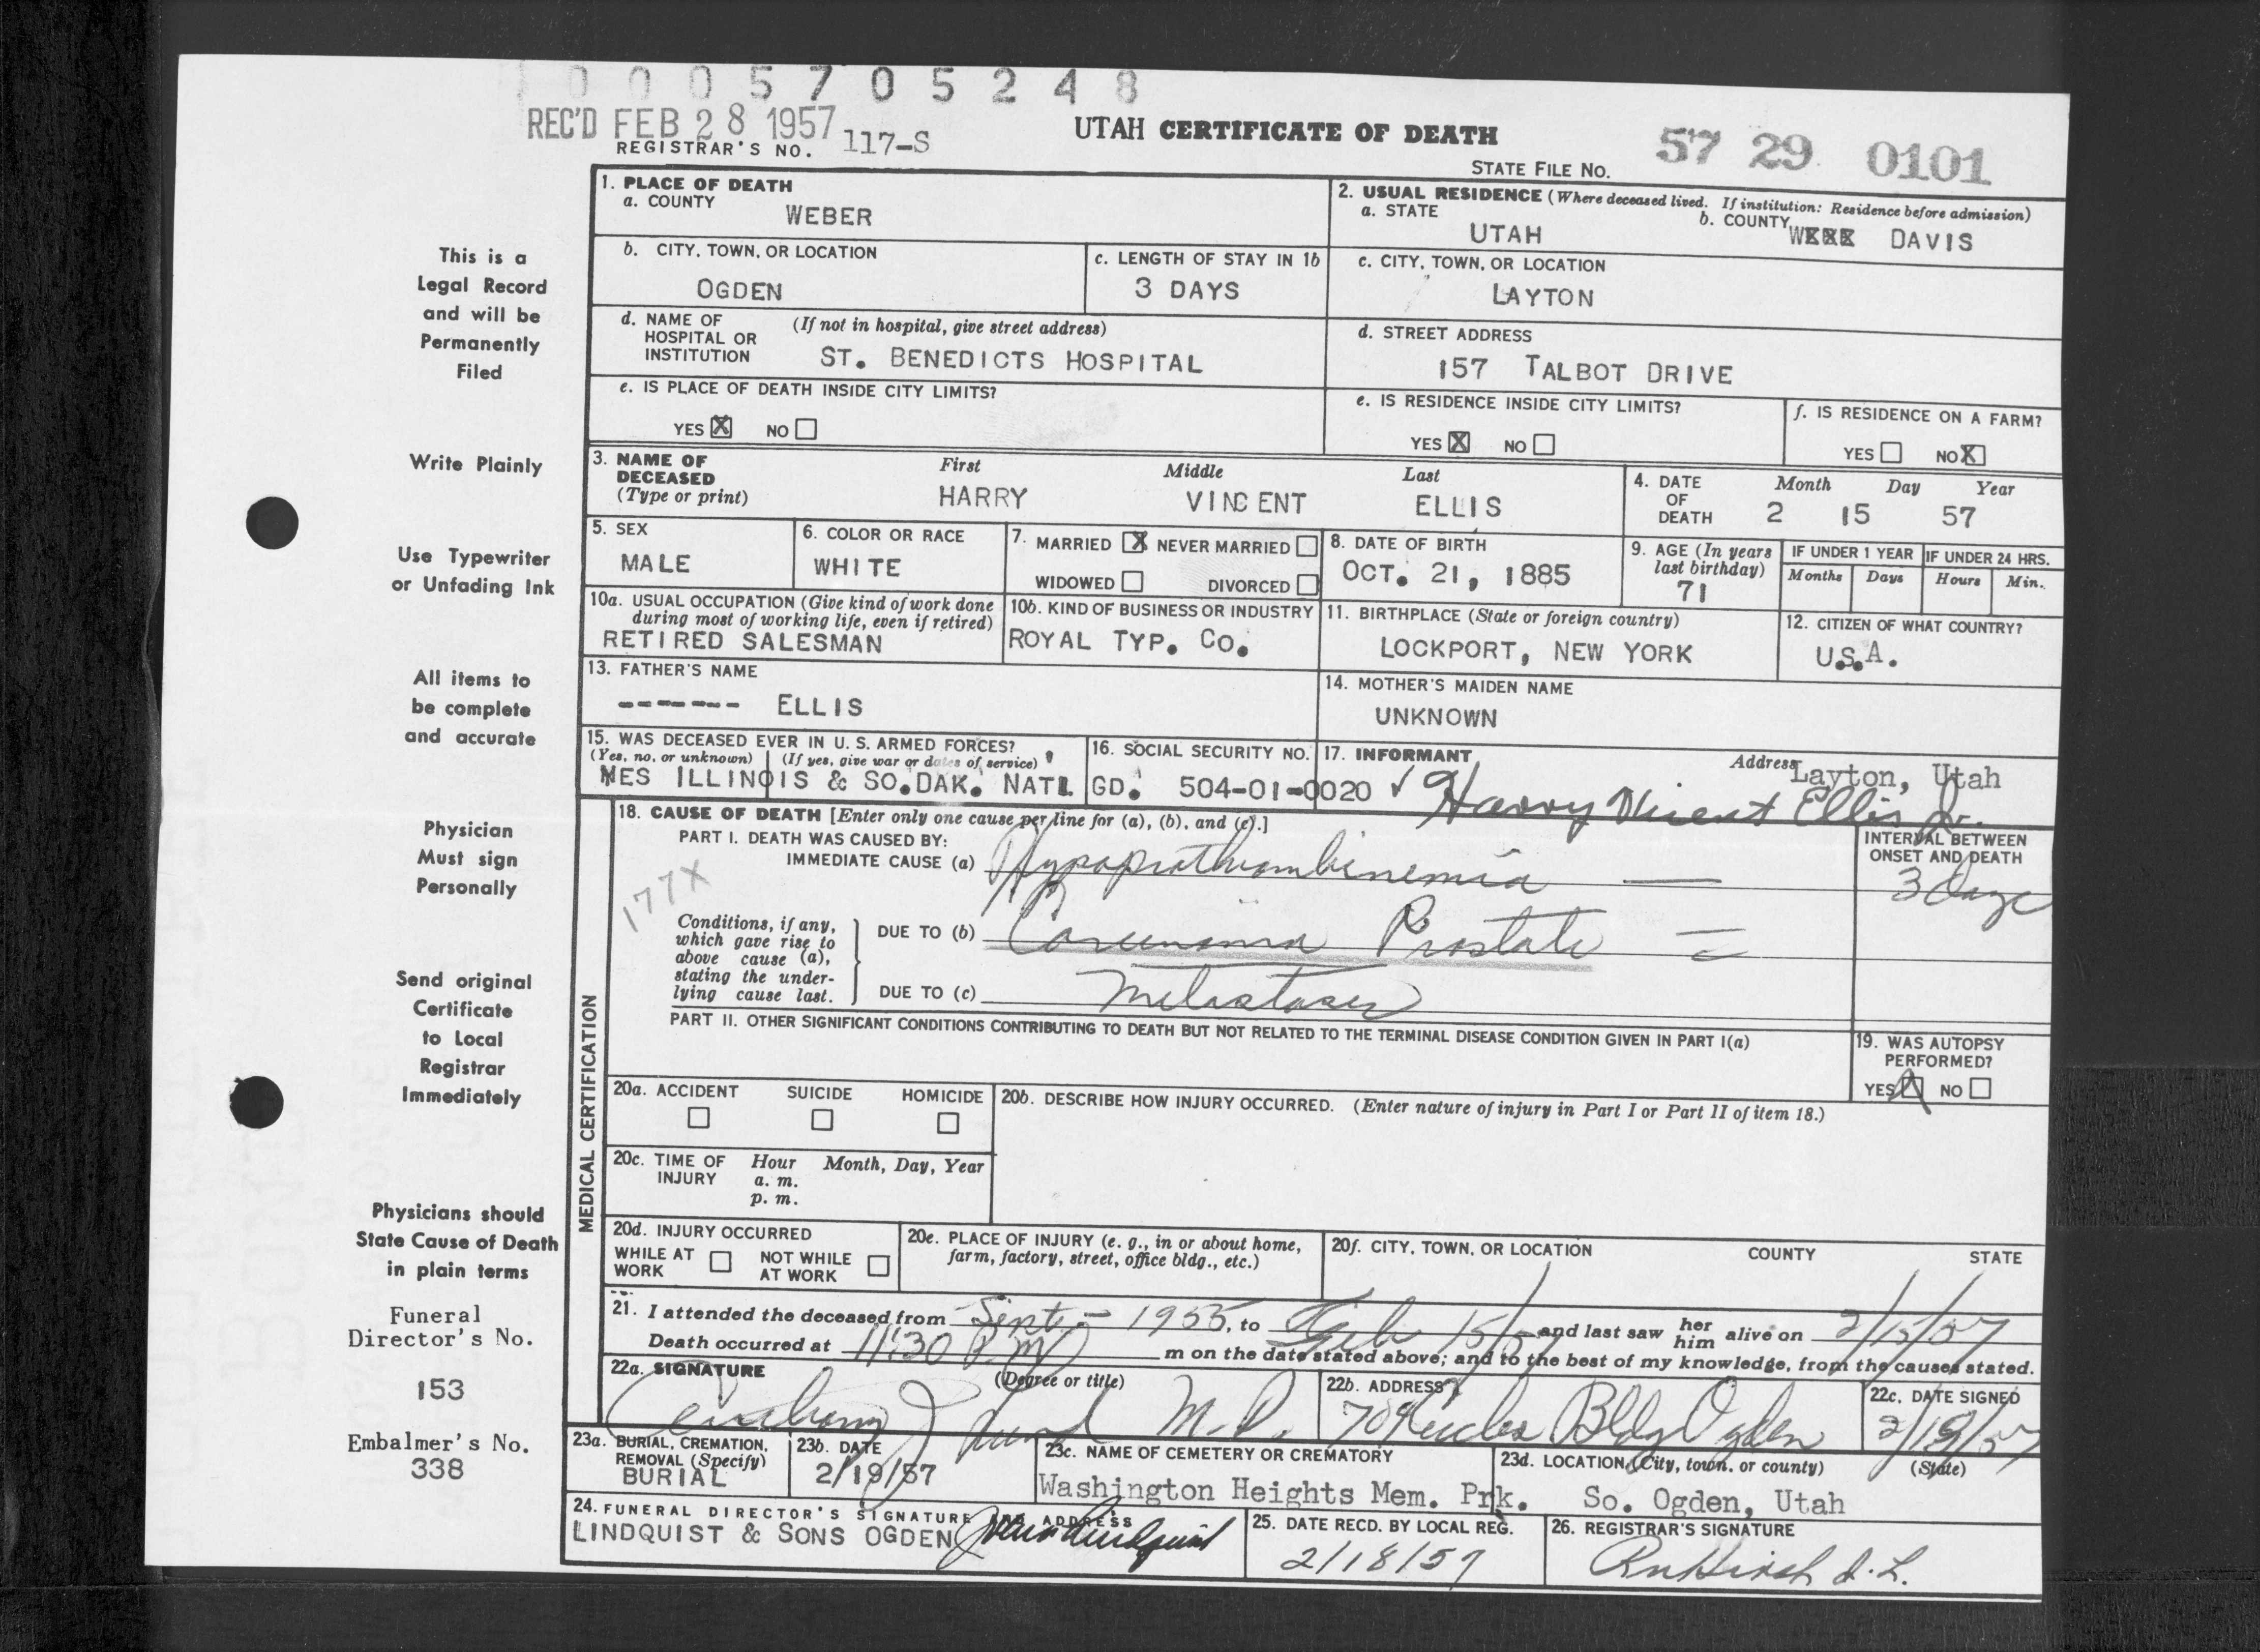 0005705248
REC'D FEB 28 1957
REGISTRAR'S NO. 117-S
UTAH CERTIFICATE OF DEATH
STATE FILE NO. 57 29 0101
This is a
Legal Record
and will be
Permanently
Filed
Write Plainly
Use Typewriter
or Unfading Ink
All items to
be complete
and accurate
Physician
Must sign
Personally
Send original
Certificate
to Local
Registrar
Immediately
Physicians should
State Cause of Death
in plain terms
Funeral
Director's No.
153
Embalmer's No.
338
1. PLACE OF DEATH
a. COUNTY
WEBER
2. USUAL RESIDENCE (Where deceased lived. If institution: Residence before admission)
a. STATE
UTAH
b. COUNTY
DAVIS
b. CITY, TOWN, OR LOCATION
OGDEN
c. LENGTH OF STAY IN 1b
3 DAYS
c. CITY, TOWN, OR LOCATION
LAYTON
d. NAME OF HOSPITAL OR INSTITUTION
(If not in hospital, give street address)
ST. BENEDICTS HOSPITAL
d. STREET ADDRESS
157 TALBOT DRIVE
e. IS PLACE OF DEATH INSIDE CITY LIMITS?
YES X NO
e. IS RESIDENCE INSIDE CITY LIMITS?
YES X NO
f. IS RESIDENCE ON A FARM?
YES NO X
3. NAME OF DECEASED
(Type or print)
First Middle Last
HARRY VINCENT ELLIS
4. DATE OF DEATH
Month Day Year
2 15 57
5. SEX
MALE
6. COLOR OR RACE
WHITE
7. MARRIED X NEVER MARRIED
WIDOWED DIVORCED
8. DATE OF BIRTH
OCT. 21, 1885
9. AGE (In years last birthday)
71
IF UNDER 1 YEAR
Months Days
IF UNDER 24 HRS.
Hours Min.
10a. USUAL OCCUPATION (Give kind of work done during most of working life, even if retired)
RETIRED SALESMAN
10b. KIND OF BUSINESS OR INDUSTRY
ROYAL TYP. CO.
11. BIRTHPLACE (State or foreign country)
LOCKPORT, NEW YORK
12. CITIZEN OF WHAT COUNTRY?
U.S.A.
13. FATHER'S NAME
------- ELLIS
14. MOTHER'S MAIDEN NAME
UNKNOWN
15. WAS DECEASED EVER IN U. S. ARMED FORCES?
(Yes, no, or unknown) (If yes, give war or dates of service)
YES ILLINOIS & SO.DAK. NATL GD.
16. SOCIAL SECURITY NO.
504-01-0020
17. INFORMANT
Address
Layton, Utah
Harry Vincent Ellis Jr.
MEDICAL CERTIFICATION
18. CAUSE OF DEATH [Enter only one cause per line for (a), (b), and (c).]
PART I. DEATH WAS CAUSED BY:
IMMEDIATE CAUSE (a) Hypoprothrombinemia
INTERVAL BETWEEN ONSET AND DEATH
3 Days
177X
Conditions, if any, which gave rise to above cause (a), stating the underlying cause last.
DUE TO (b) Carcinoma Prostate
DUE TO (c) Metastases
PART II. OTHER SIGNIFICANT CONDITIONS CONTRIBUTING TO DEATH BUT NOT RELATED TO THE TERMINAL DISEASE CONDITION GIVEN IN PART I(a)
19. WAS AUTOPSY PERFORMED?
YES NO
20a. ACCIDENT SUICIDE HOMICIDE
20b. DESCRIBE HOW INJURY OCCURRED. (Enter nature of injury in Part I or Part II of item 18.)
20c. TIME OF INJURY
Hour Month, Day, Year
a. m.
p. m.
20d. INJURY OCCURRED
WHILE AT WORK NOT WHILE AT WORK
20e. PLACE OF INJURY (e. g., in or about home, farm, factory, street, office bldg., etc.)
20f. CITY, TOWN, OR LOCATION COUNTY STATE
21. I attended the deceased from Sept - 1955, to Feb 15/57 and last saw her him alive on 2/15/57
Death occurred at 11:30 P.M m on the date stated above; and to the best of my knowledge, from the causes stated.
22a. SIGNATURE
(Degree or title)
Lund M.D.
22b. ADDRESS
Bldg Ogden
22c. DATE SIGNED
23a. BURIAL, CREMATION, REMOVAL (Specify)
BURIAL
23b. DATE
2/19/57
23c. NAME OF CEMETERY OR CREMATORY
Washington Heights Mem. Prk.
23d. LOCATION (City, town, or county) (State)
So. Ogden, Utah
24. FUNERAL DIRECTOR'S SIGNATURE AND ADDRESS
LINDQUIST & SONS OGDEN
25. DATE RECD. BY LOCAL REG.
2/18/57
26. REGISTRAR'S SIGNATURE